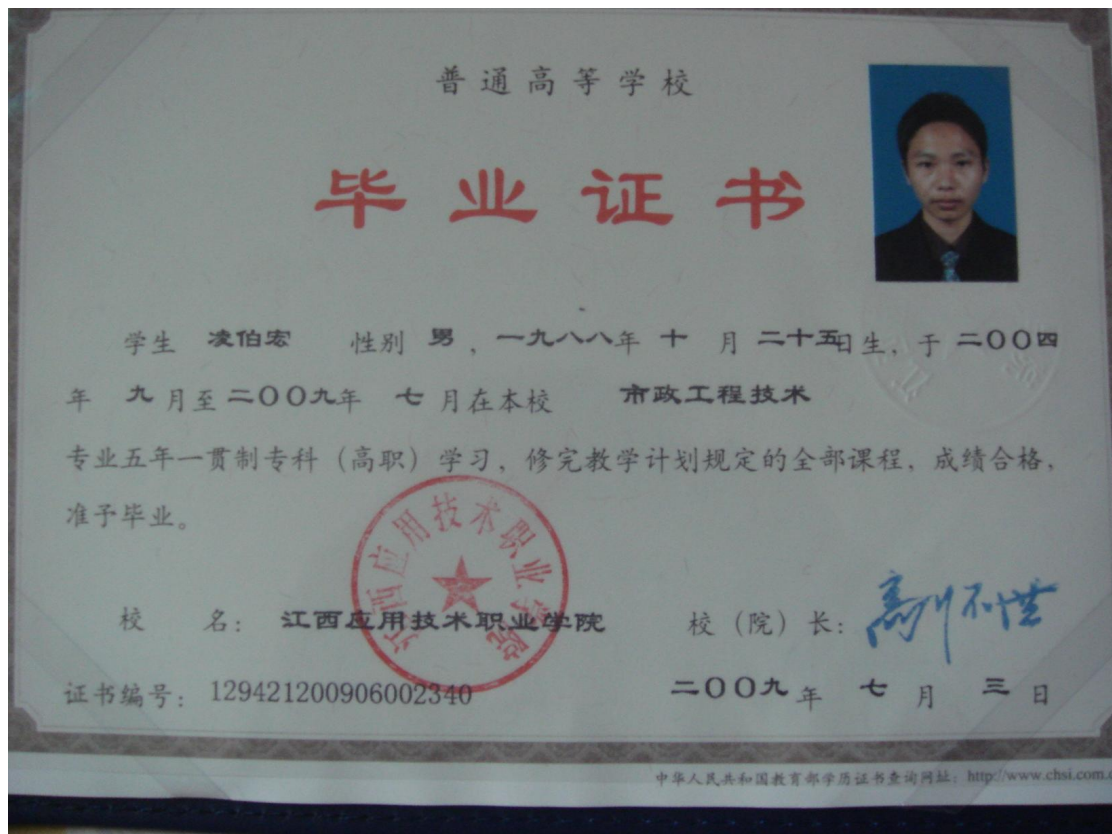 普通高等学校
毕业证书
学生 凌伯宏 性别 男，一九八八年 十 月 二十五日生，于 二〇〇四
年 九 月至 二〇〇九年 七 月在本校 市政工程技术
专业五年一贯制专科（高职）学习，修完教学计划规定的全部课程，成绩合格，
准予毕业。
江西应用技术职业学院
校 名：江西应用技术职业学院 校（院）长：
证书编号：129421200906002340 二〇〇九年 七 月 三 日
中华人民共和国教育部学历证书查询网址：http://www.chsi.com.c